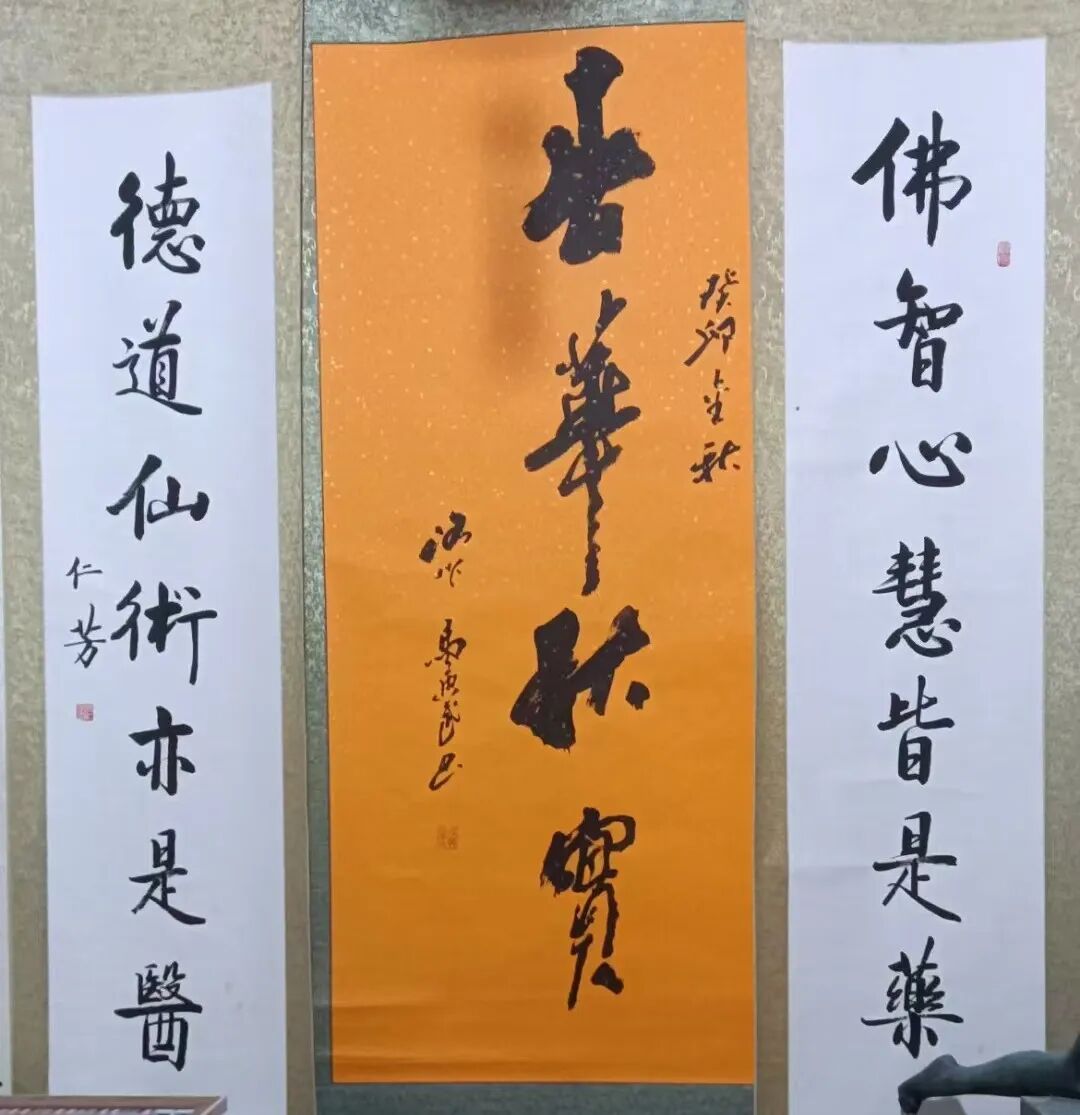 佛智心慧皆是藥
癸卯金秋
春華秋實
德道仙術亦是醫
仁芳